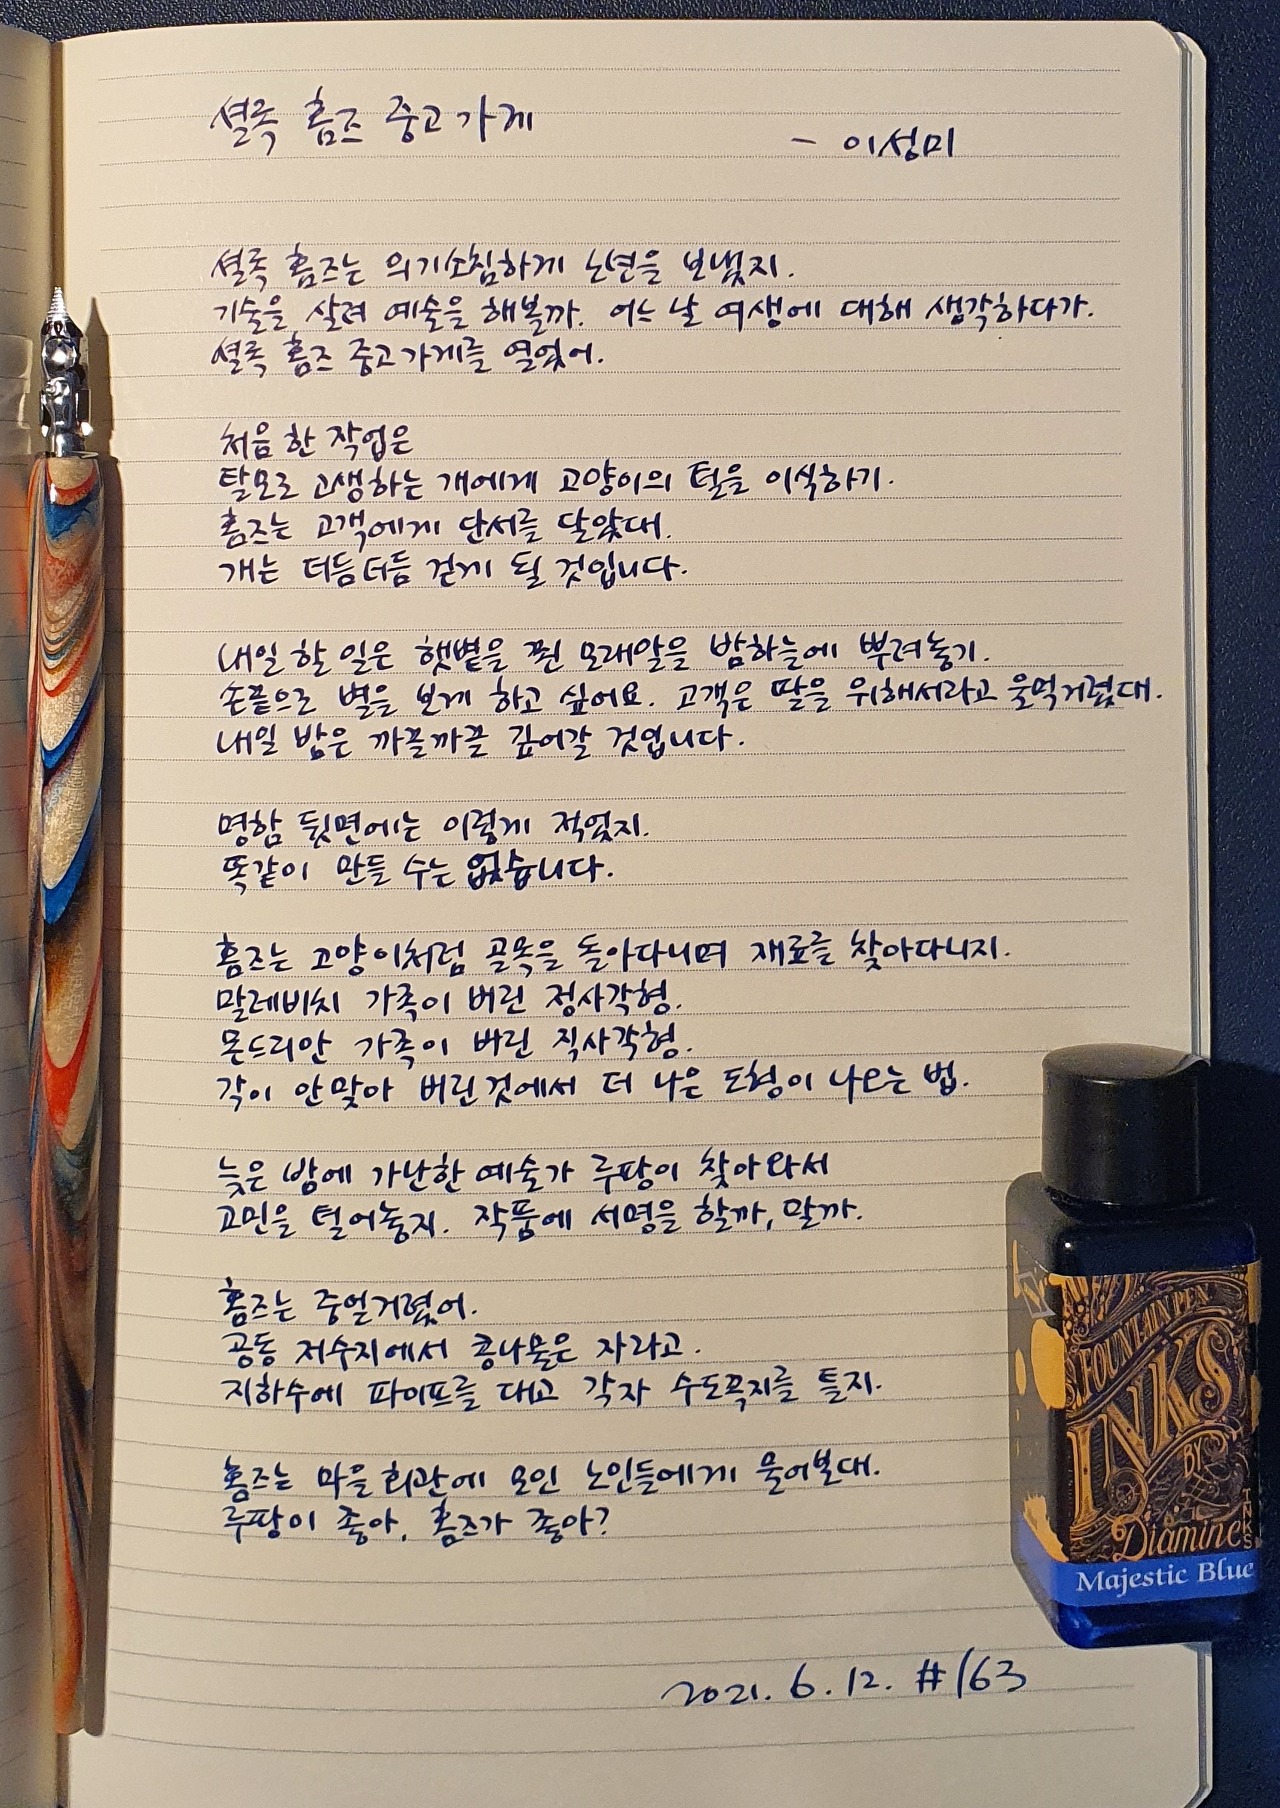 셜록 홈즈 중고 가게
- 이성미
셜록 홈즈는 의기소침하게 노년을 보냈지.
기술을 살려 예술을 해볼까. 어느 날 여생에 대해 생각하다가.
셜록 홈즈 중고 가게를 열었어.
처음 한 작업은
탈모로 고생하는 개에게 고양이의 털을 이식하기.
홈즈는 고객에게 단서를 달았대.
개는 더듬더듬 걷게 될 것입니다.
내일 할 일은 햇볕을 쬔 모래알을 밤하늘에 뿌려놓기.
손끝으로 별을 보게 하고 싶어요. 고객은 딸을 위해서라고 울먹거렸대.
내일 밤은 까끌까끌 깊어갈 것입니다.
명함 뒷면에는 이렇게 적었지.
똑같이 만들 수는 없습니다.
홈즈는 고양이처럼 골목을 돌아다니며 재료를 찾아다니지.
말레비치 가족이 버린 정사각형.
몬드리안 가족이 버린 직사각형.
각이 안 맞아 버린 것에서 더 나은 도형이 나오는 법.
늦은 밤에 가난한 예술가 루팡이 찾아와서
고민을 털어놓지. 작품에 서명을 할까, 말까.
홈즈는 중얼거렸어.
공동 저수지에서 콩나물은 자라고.
지하수에 파이프를 대고 각자 수도꼭지를 틀지.
홈즈는 마을 회관에 모인 노인들에게 물어보대.
루팡이 좋아, 홈즈가 좋아?
2021. 6. 12. #163
FOUNTAIN PEN
INKS
BY
Diamine
INKS
Majestic Blue